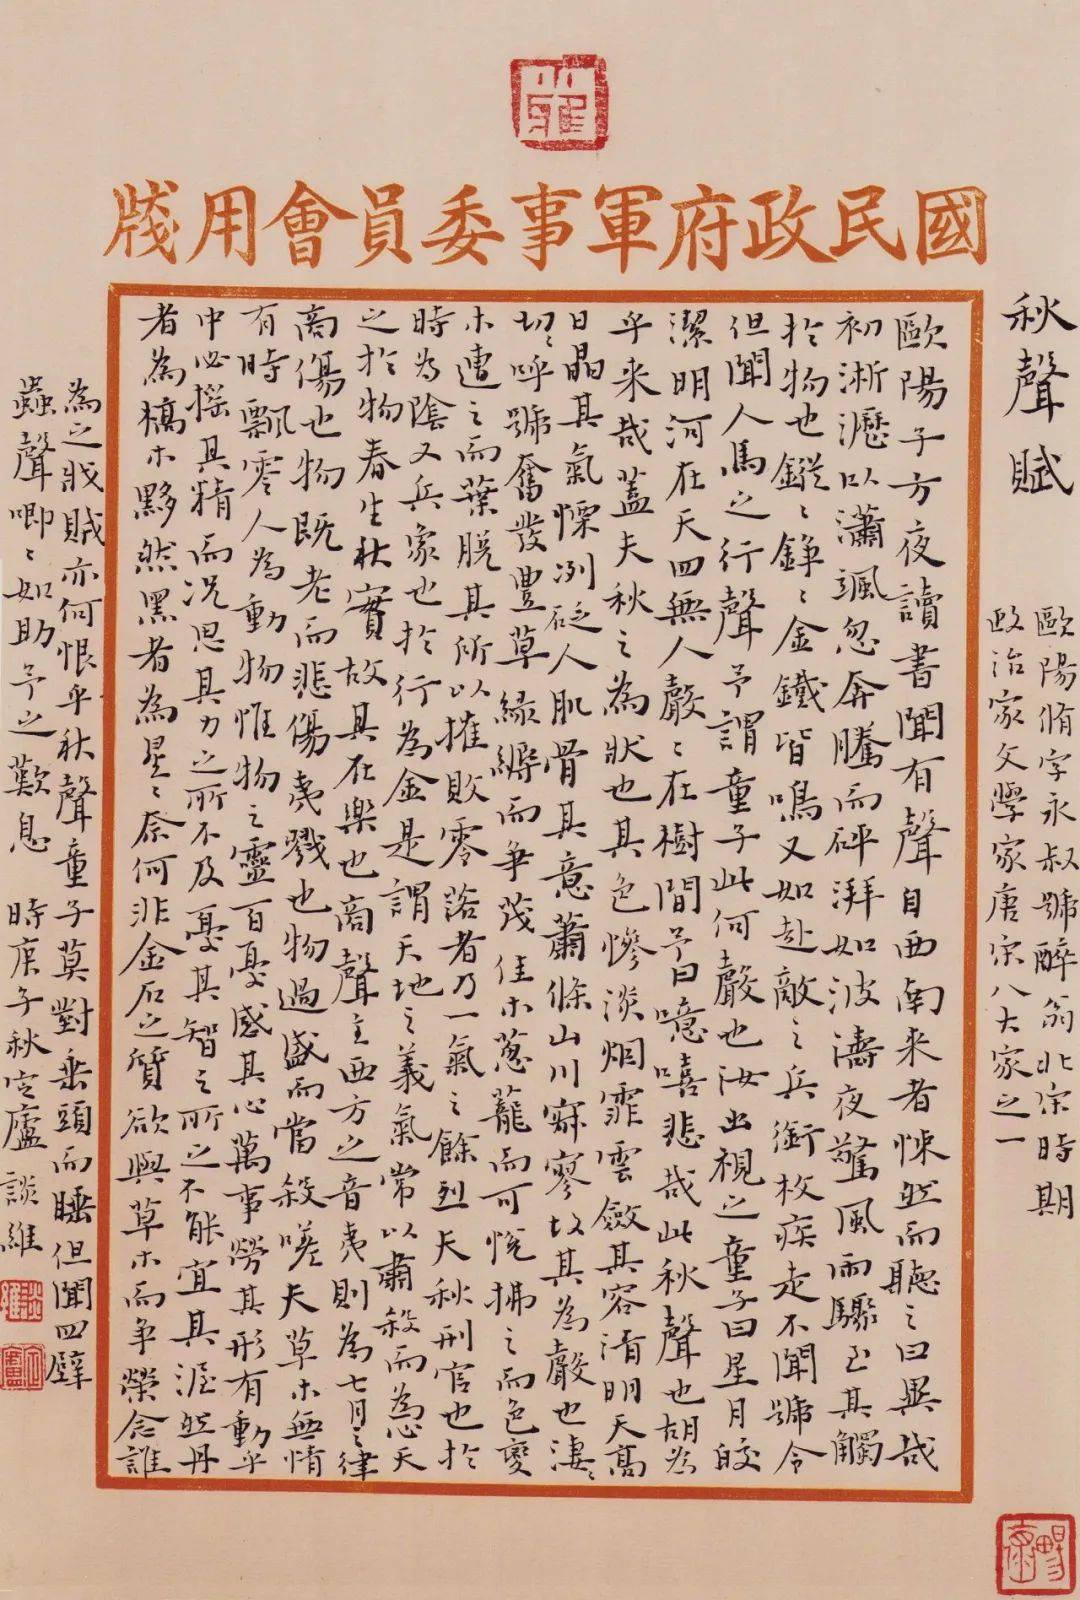 國民政府軍事委員會用牋
秋聲賦
歐陽脩字永叔號醉翁北宋時期
政治家文學家唐宋八大家之一
歐陽子方夜讀書聞有聲自西南来者悚然而聽之曰異哉
初淅瀝以瀟颯忽奔騰而砰湃如波濤夜驚風雨驟至其觸
於物也鏦〻錚〻金鐵皆鳴又如赴敵之兵銜枚疾走不聞號令
但聞人馬之行聲予謂童子此何聲也汝出視之童子曰星月皎
潔明河在天四無人聲〻在樹間予曰噫嘻悲哉此秋聲也胡為
乎来哉蓋夫秋之為狀也其色慘淡烟霏雲斂其容清明天高
日晶其氣慄冽砭人肌骨其意蕭條山川寂寥故其為聲也淒〻
切〻呼號奮發豐草緑縟而爭茂佳木蔥蘢而可悅拂之而色變
木遭之而葉脫其所以摧敗零落者乃一氣之餘烈夫秋刑官也於
時為陰又兵象也於行為金是謂天地之義氣常以肅殺而為心天
之於物春生秋實故其在樂也商聲主西方之音夷則為七月之律
商傷也物既老而悲傷夷戮也物過盛而當殺嗟夫草木無情
有時飄零人為動物惟物之靈百憂感其心萬事勞其形有動乎
中必搖其精而況思其力之所不及憂其智之所不能宜其渥然丹
者為槁木黟然黑者為星〻奈何非金石之質欲與草木而爭榮念誰
為之戕賊亦何恨乎秋聲童子莫對垂頭而睡但聞四壁
蟲聲唧〻如助予之歎息 時庚子秋定廬談維
談維
定廬